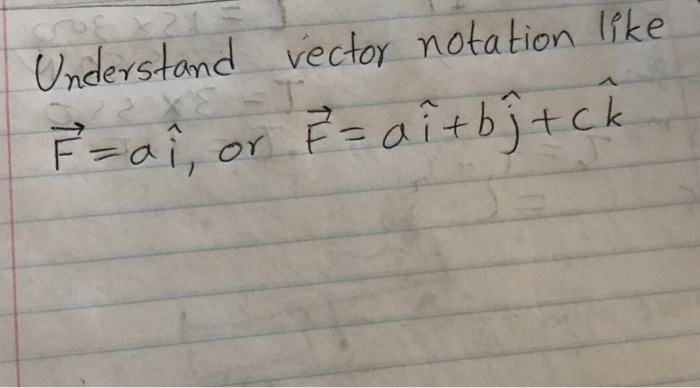 Understand vector notation like
F⃗ = a î, or F⃗ = a î + b ĵ + c k̂